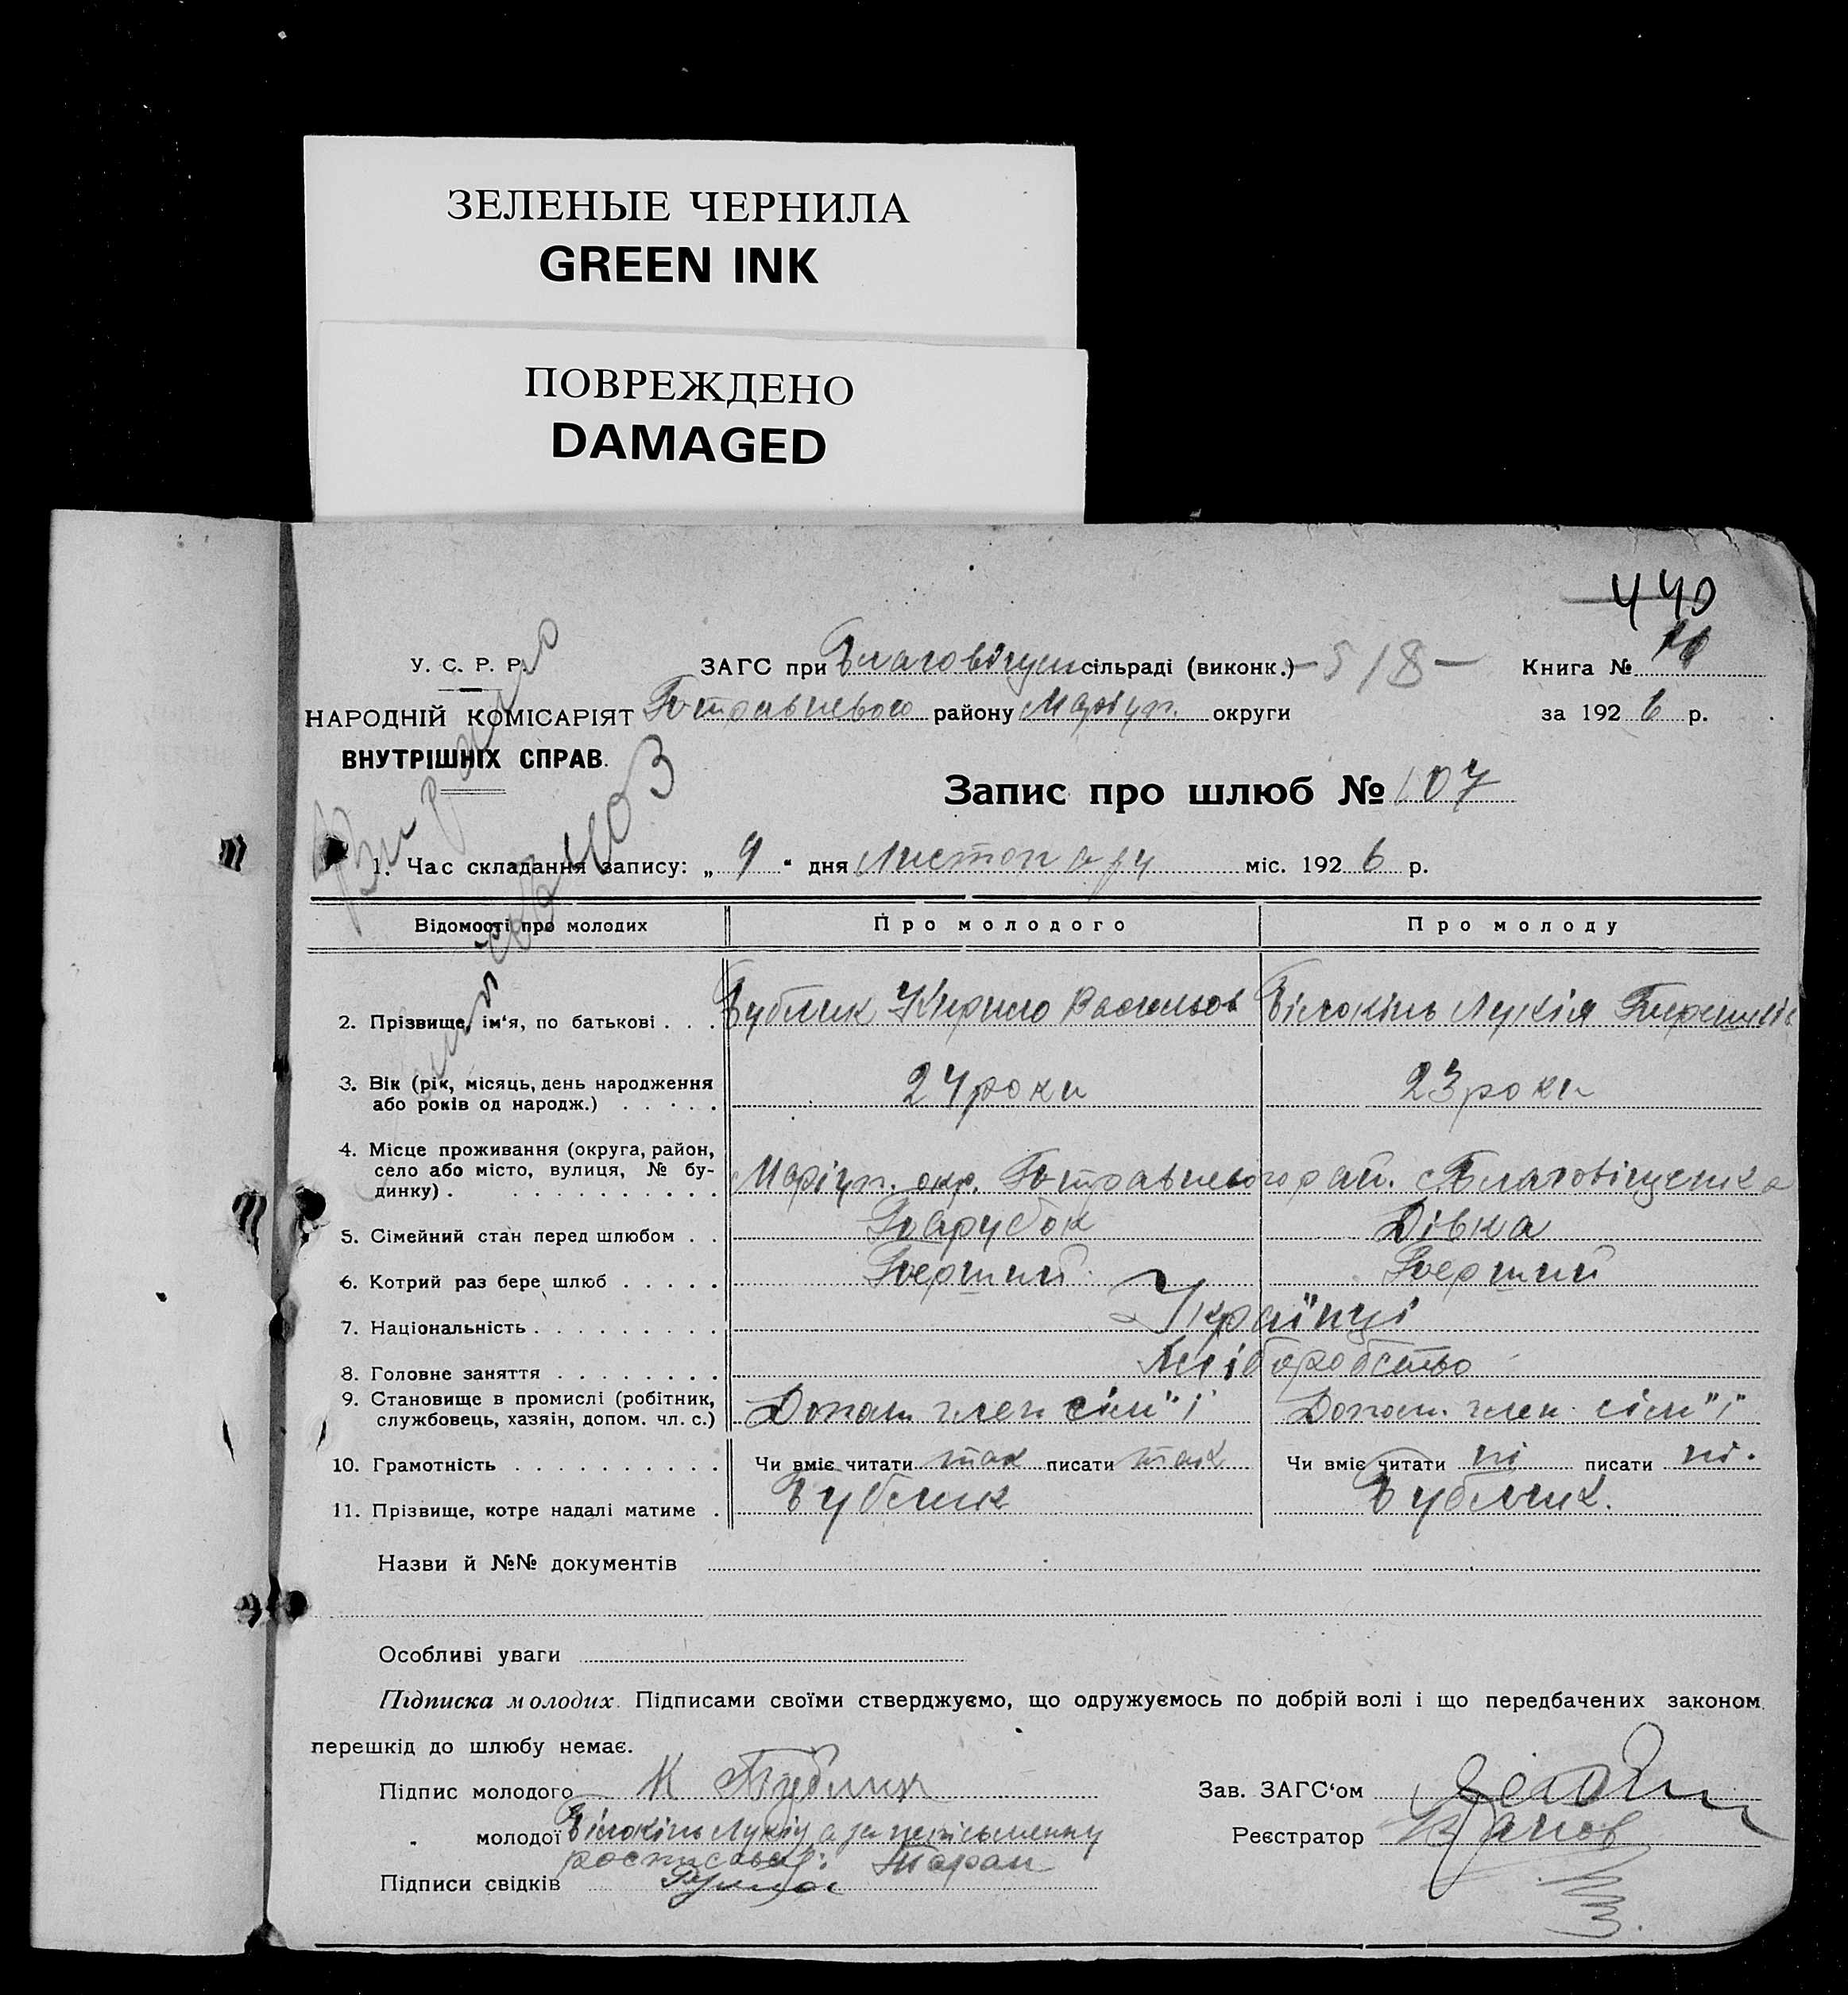 ЗЕЛЕНЫЕ ЧЕРНИЛА
GREEN INK
ПОВРЕЖДЕНО
DAMAGED
440
У. С. Р. Р.
ЗАГС при Благовіщен сільраді (виконк.) - 518 -
Книга №
НАРОДНІЙ КОМІСАРІЯТ
району Маріуп. округи
за 1926 р.
ВНУТРІШНІХ СПРАВ.
Запис про шлюб № 107
1. Час складання запису: „ 9 “ дня Листопаду міс. 1926 р.
Відомості про молодих
Про молодого
Про молоду
2. Прізвище, ім'я, по батькові . . . Бублик Кирило Васильов Білокінь Лукія
3. Вік (рік, місяць, день народження
або років од народж.) . . . . . 24 роки 23 роки
4. Місце проживання (округа, район,
село або місто, вулиця, № бу-
динку) . . . . . . . . . . . Маріуп. окр. рай. с. Благовіщенка
5. Сімейний стан перед шлюбом . . Парубок Дівка
6. Котрий раз бере шлюб . . . . . Перший Перший
7. Національність . . . . . . . . . Українці
8. Головне заняття . . . . . . . . Хліборобство
9. Становище в промислі (робітник,
службовець, хазяін, допом. чл. с.) Допом. член сім"ї Допом. член сім"ї
10. Грамотність . . . . . . . . . . Чи вміє читати так писати так Чи вміє читати ні писати ні.
11. Прізвище, котре надалі матиме . Бублик Бублик.
Назви й №№ документів
Особливі уваги
Підписка молодих. Підписами своїми стверджуємо, що одружуємось по добрій волі і що передбачених законом
перешкід до шлюбу немає.
Підпис молодого К Бублик
Зав. ЗАГС'ом
„ молодої Білокінь Лукія а за неписьменну
Реєстратор
росписався: Таран
Підписи свідків